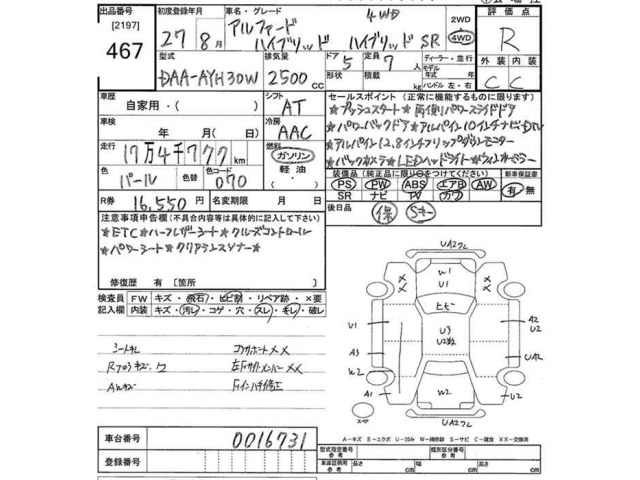 出品番号 初度登録年月 車名・グレード 4WD 2WD 評価点
[2197] 467 27年 8月 アルファード ハイブリッド ハイブリッド SR 4WD R
型式 排気量 ドア 定員 ディーラー・並行 外装 内装
DAA-AYH30W 2500CC 5 7人 モデル年式 年
形状 積載 kg ハンドル 左・右 C C
車歴 シフト セールスポイント(正常に機能するものに限ります)
自家用・( ) AT ★プッシュスタート★両側パワースライドドア
車検 冷房 ★パワーバックドア★アルパイン10インチナビ・DTV
年 月(日) AAC ★アルパイン12.8インチフリップダウンモニター
走行 燃料 ★バックカメラ★LEDヘッドライト
17万4千777km ガソリン 装備品(純正品に限り○をつけてください) 新車保証書
色 色コード 軽油 PS PW ABS エアB AW 有・無
パール 070 ・( ) SR ナビ TV カワ
R券 16,550円 名変期限 月 日 後日品 保 Sキー
注意事項申告欄(不具合内容等は具体的に記入して下さい)
★ETC★ハーフレザーシート★クルーズコントロール
★パワーシート★クリアランスソナー★
修復歴 有〔箇所 〕
検査員 FW キズ・飛石・ヒビ割・リペア跡・×要
記入欄 内装 キズ・汚レ・コゲ・穴・スレ・キレ・破レ
コアサポートXX
左Fサイドメンバー XX
AWキズ Fインパネ修正
UA2フレ
XX XX
W1
U1
ヒビ
U1 U3 A2
U2 U2
A3 UA2
W2
W2
A1 U1
UA2フレ
A-キズ E-エクボ U-凹み W-補修跡 S-サビ C-腐食 XX-交換済
車台番号 0016731 型式指定番号 参考 類別区分番号 参考
登録番号 車庫証明用 参考 長さ cm 幅 cm 高さ cm